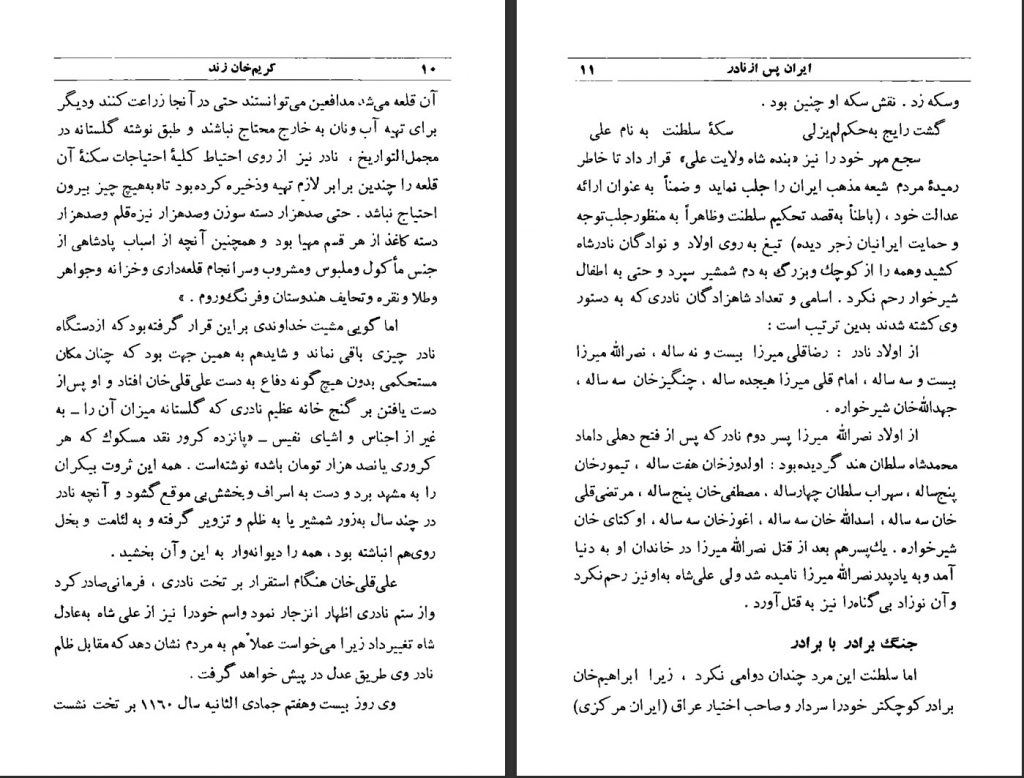 ۱۰ کریم‌خان زند
آن قلعه می‌شد مدافعین می‌توانستند حتی در آنجا زراعت کنند ودیگر
برای تهیه آب ونان به خارج محتاج نباشند و طبق نوشته گلستانه در
مجمل‌التواریخ ، نادر نیز از روی احتیاط کلیهٔ احتیاجات سکنهٔ آن
قلعه را چندین برابر لازم تهیه وذخیره کرده‌بود تا«به‌هیچ چیز بیرون
احتیاج نباشد . حتی صدهزار دسته سوزن وصدهزار نیزه‌قلم وصدهزار
دسته کاغذ از هر قسم مهیا بود و همچنین آنچه از اسباب پادشاهی از
جنس مأکول وملبوس ومشروب وسرانجام قلعه‌داری وخزانه وجواهر
وطلا و نقره و تحایف هندوستان وفرنگ‌وروم . »
اما گویی مشیت خداوندی براین قرار گرفته‌بود که ازدستگاه
نادر چیزی باقی نماند و شایدهم به همین جهت بود که چنان مکان
مستحکمی بدون هیچ‌گونه دفاع به دست علی‌قلی‌خان افتاد و او پس‌از
دست یافتن بر گنج خانه عظیم نادری که گلستانه میزان آن را ــ به
غیر از اجناس و اشیای نفیس ــ «پانزده کرور نقد مسکوک که هر
کروری پانصد هزار تومان باشد» نوشته‌است . همه این ثروت بیکران
را به مشهد برد و دست به اسراف وبخشش‌بی موقع گشود و آنچه نادر
در چند سال به‌زور شمشیر یا به ظلم و تزویر گرفته و به لئامت و بخل
روی‌هم انباشته بود ، همه را دیوانه‌وار به این وآن بخشید .
علی‌قلی‌خان هنگام استقرار بر تخت نادری ، فرمانی‌صادرکرد
واز ستم نادری اظهار انزجار نمود واسم خودرا نیز از علی شاه به‌عادل
شاه تغییرداد زیرا می‌خواست عملاً هم به مردم نشان دهدکه‌مقابل ظلم
نادر وی طریق عدل در پیش خواهد گرفت .
وی روز بیست وهفتم جمادی الثانیه سال ۱۱۶۰ بر تخت نشست
ایران پس ازنادر ۱۱
وسکه زد . نقش سکه او چنین بود .
گشت رایج به‌حکم‌لم‌یزلی سکهٔ سلطنت به نام علی
سجع مهر خود را نیز «بنده شاه ولایت علی» قرار داد تا خاطر
رمیدهٔ مردم شیعه مذهب ایران را جلب نماید و ضمناً به عنوان ارائه
عدالت خود ، (باطناً به‌قصد تحکیم سلطنت وظاهراً به منظورجلب‌توجه
و حمایت ایرانیان زجر دیده) تیغ به روی اولاد و نوادگان نادرشاه
کشید وهمه را ازکوچک وبزرگ به دم شمشیر سپرد و حتی به اطفال
شیرخوار رحم نکرد . اسامی و تعداد شاهزادگان نادری‌که به دستور
وی کشته شدند بدین ترتیب است :
از اولاد نادر : رضاقلی میرزا بیست و نه ساله ، نصرالله میرزا
بیست و سه ساله ، امام قلی میرزا هیجده ساله ، چنگیزخان سه ساله ،
جهدالله‌خان شیرخواره .
از اولاد نصرالله میرزا پسر دوم نادرکه پس از فتح دهلی داماد
محمدشاه سلطان هند گردیده‌بود : اولدوزخان هفت ساله ، تیمورخان
پنج‌ساله ، سهراب سلطان چهارساله ، مصطفی‌خان پنج‌ساله ، مرتضی‌قلی
خان سه ساله ، اسدالله خان سه ساله ، اغوزخان سه ساله ، اوکتای خان
شیرخواره . یک‌پسرهم بعد از قتل نصرالله میرزا در خاندان او به دنیا
آمد وبه یادپدرنصرالله میرزا نامیده شد ولی علی‌شاه به‌اونیز رحم‌نکرد
وآن نوزاد بی‌گناه‌را نیز به قتل‌آورد .
جنگ برادر با برادر
اما سلطنت این مرد چندان دوامی نکرد ، زیرا ابراهیم‌خان
برادرکوچکتر خودرا سردار و صاحب اختیار عراق (ایران مرکزی)